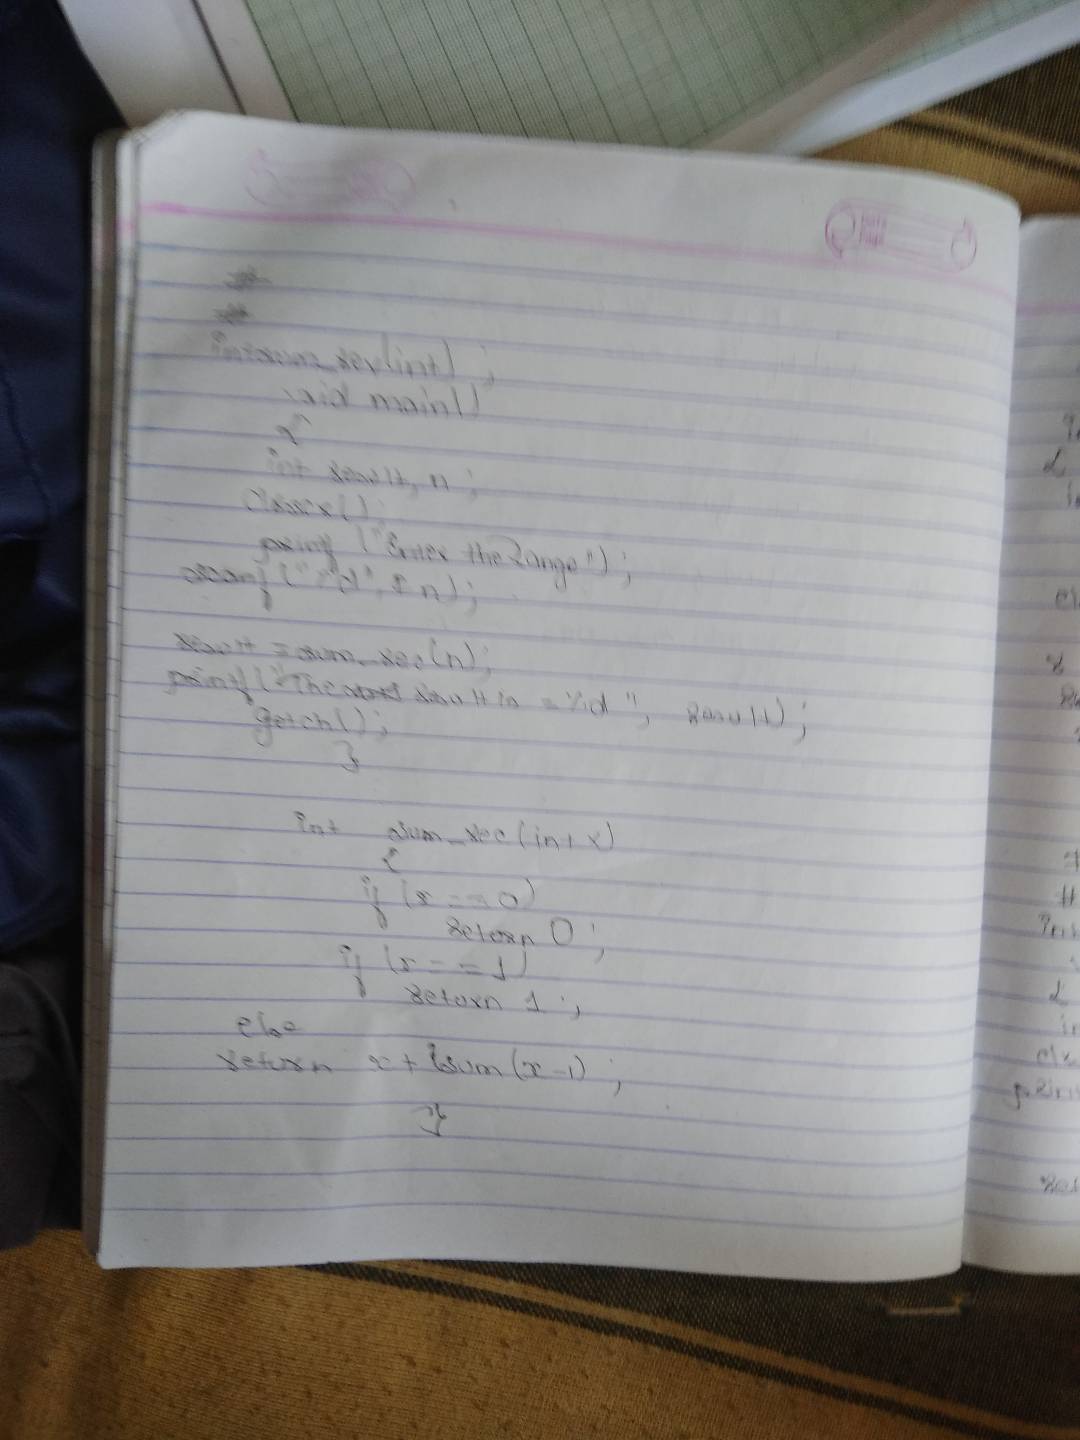 #
#
int sum_rec(int);
void main()
{
int result, n;
clrscr();
printf ("Enter the Range");
scanf ("%d", & n);
result = sum_rec(n);
printf ("The result is = %d ", result);
getch();
}
int sum_rec(int x)
{
if (x == 0)
return 0;
if (x == 1)
return 1;
else
return x + sum(x-1);
}